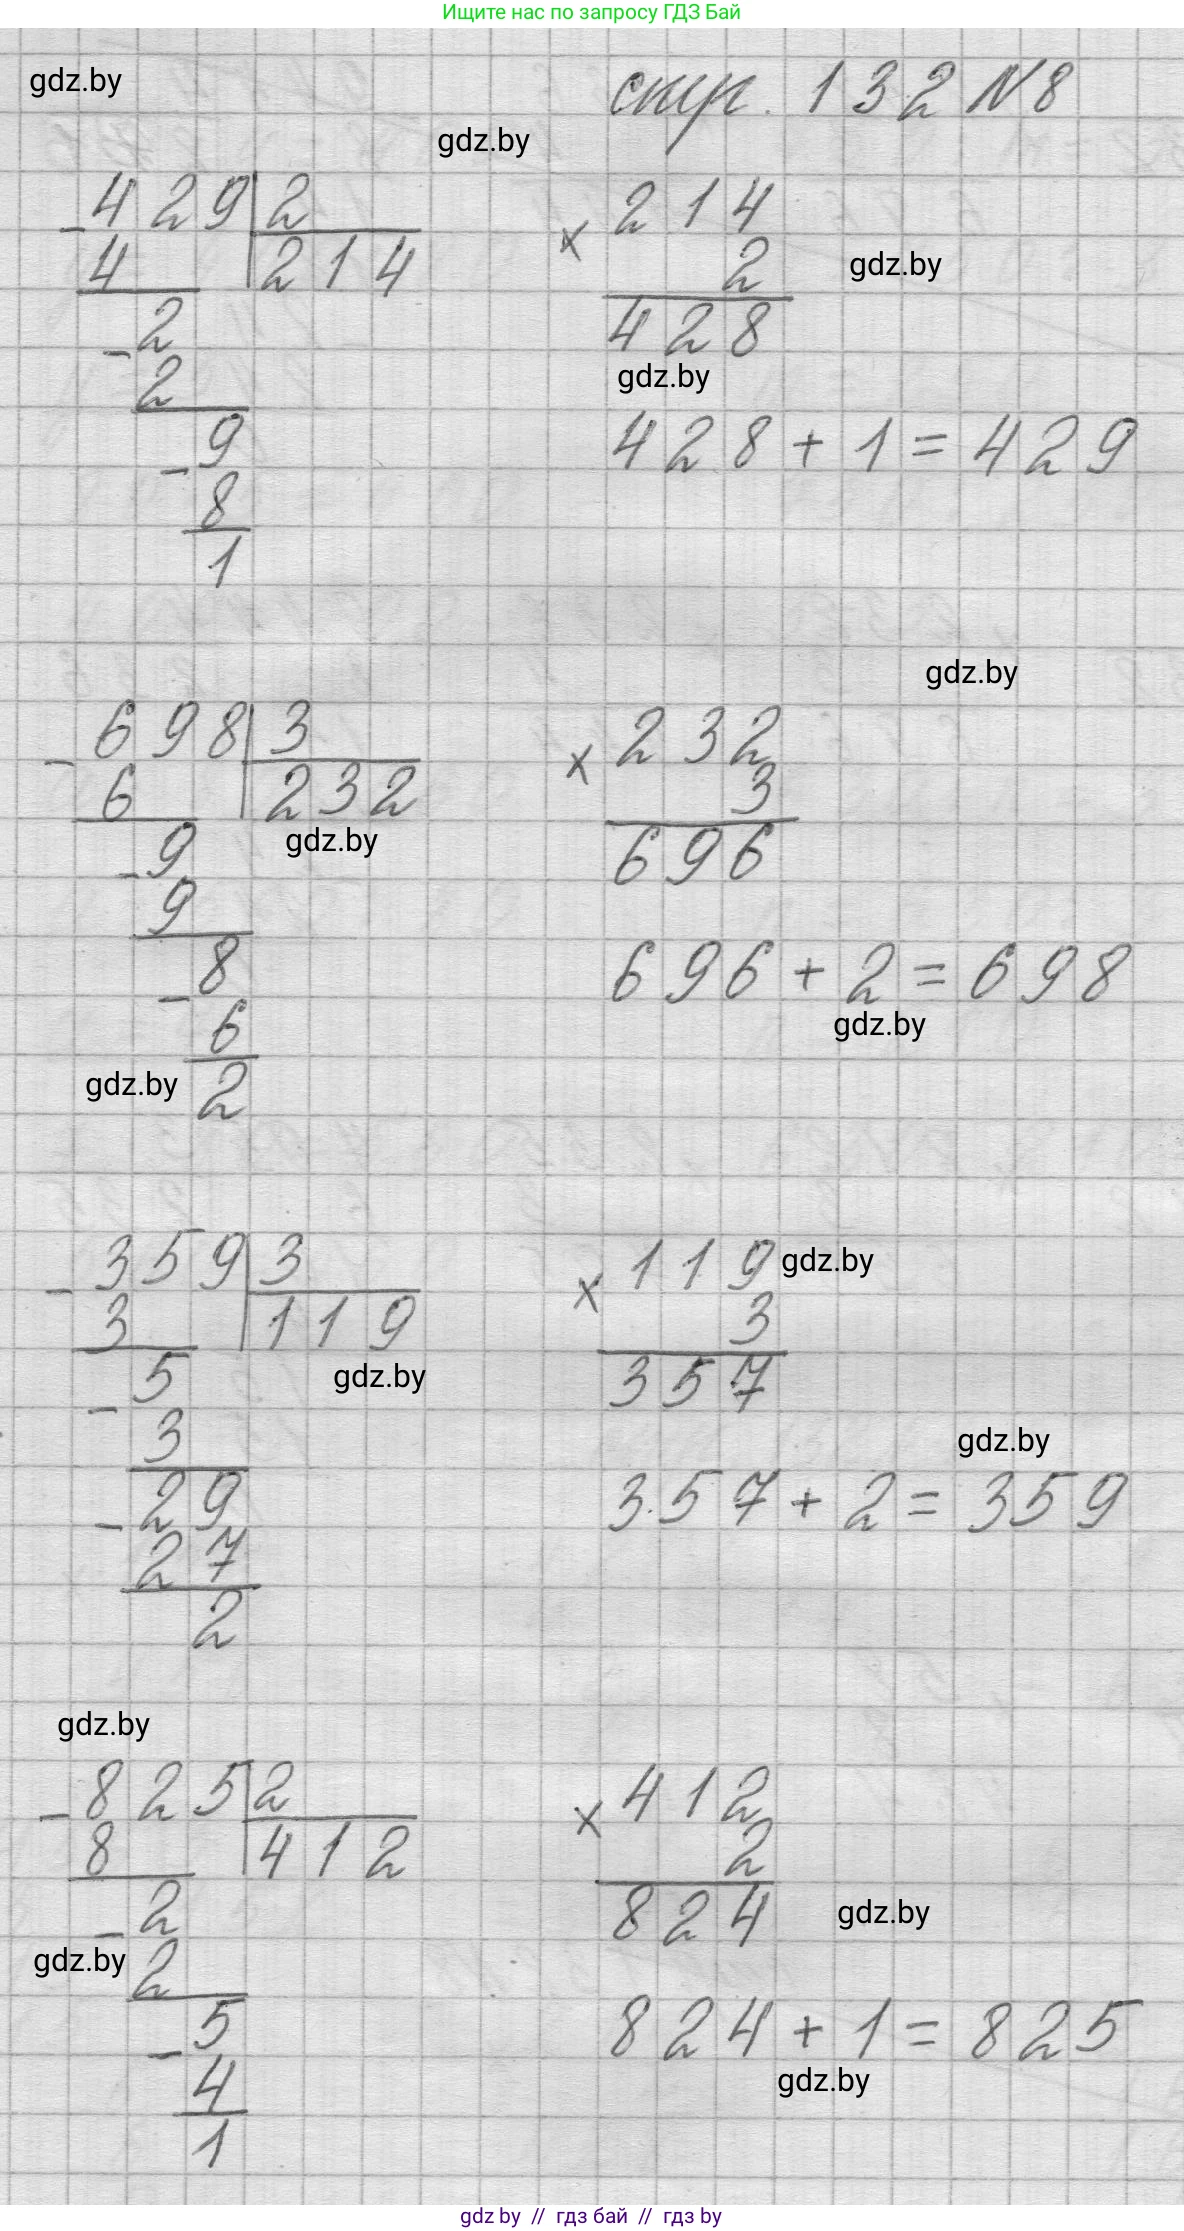 Ищите нас по запросу ГДЗ Бай
gdz.by
стр. 132 №8
gdz.by
- 429 | 2
4 | 214
2
- 2
9
- 8
1
× 214
2
gdz.by
428
gdz.by
428 + 1 = 429
gdz.by
- 698 | 3
6 | 232
gdz.by
9
- 9
8
- 6
gdz.by
2
× 232
3
696
696 + 2 = 698
gdz.by
- 359 | 3
3 | 119
gdz.by
5
- 3
29
- 27
2
× 119
gdz.by
3
357
gdz.by
357 + 2 = 359
gdz.by
- 825 | 2
8 | 412
2
- 2
gdz.by
5
- 4
1
× 412
2
824
gdz.by
824 + 1 = 825
gdz.by
gdz by // гдз бай // гдз by